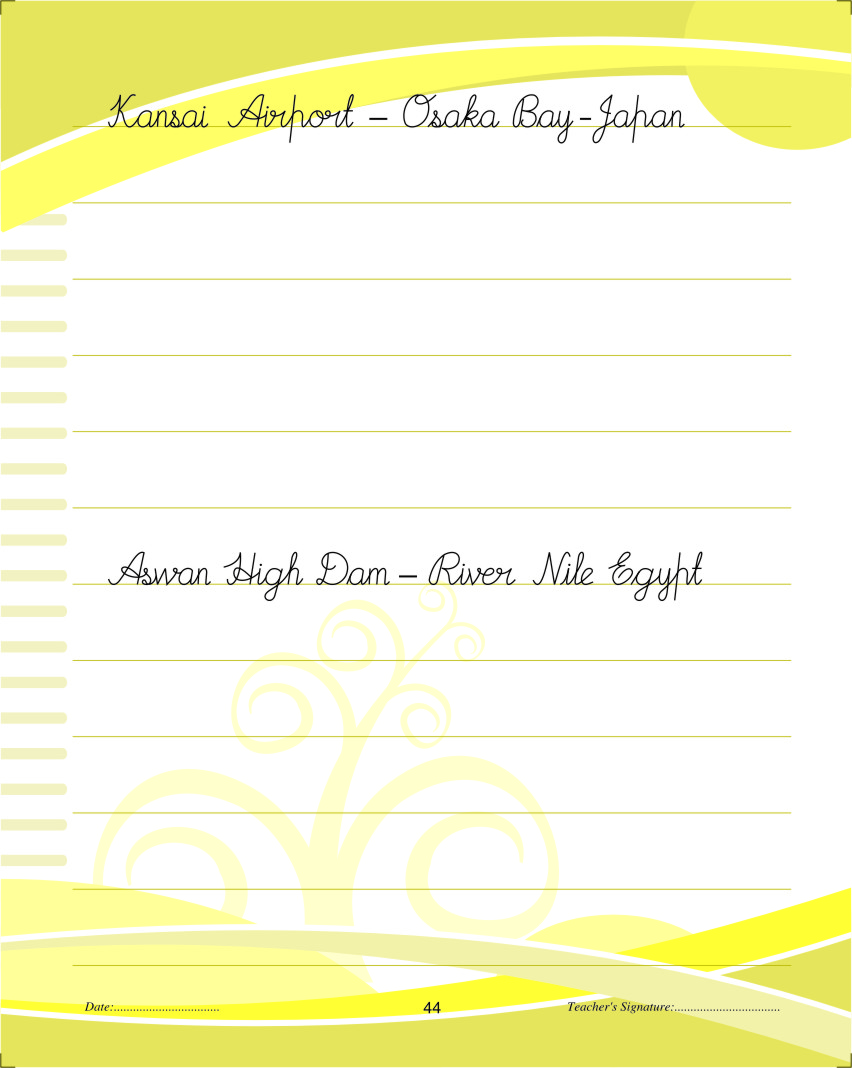 Kansai Airport – Osaka Bay-Japan
Aswan High Dam – River Nile Egypt
Date:................................. 44 Teacher's Signature:.................................